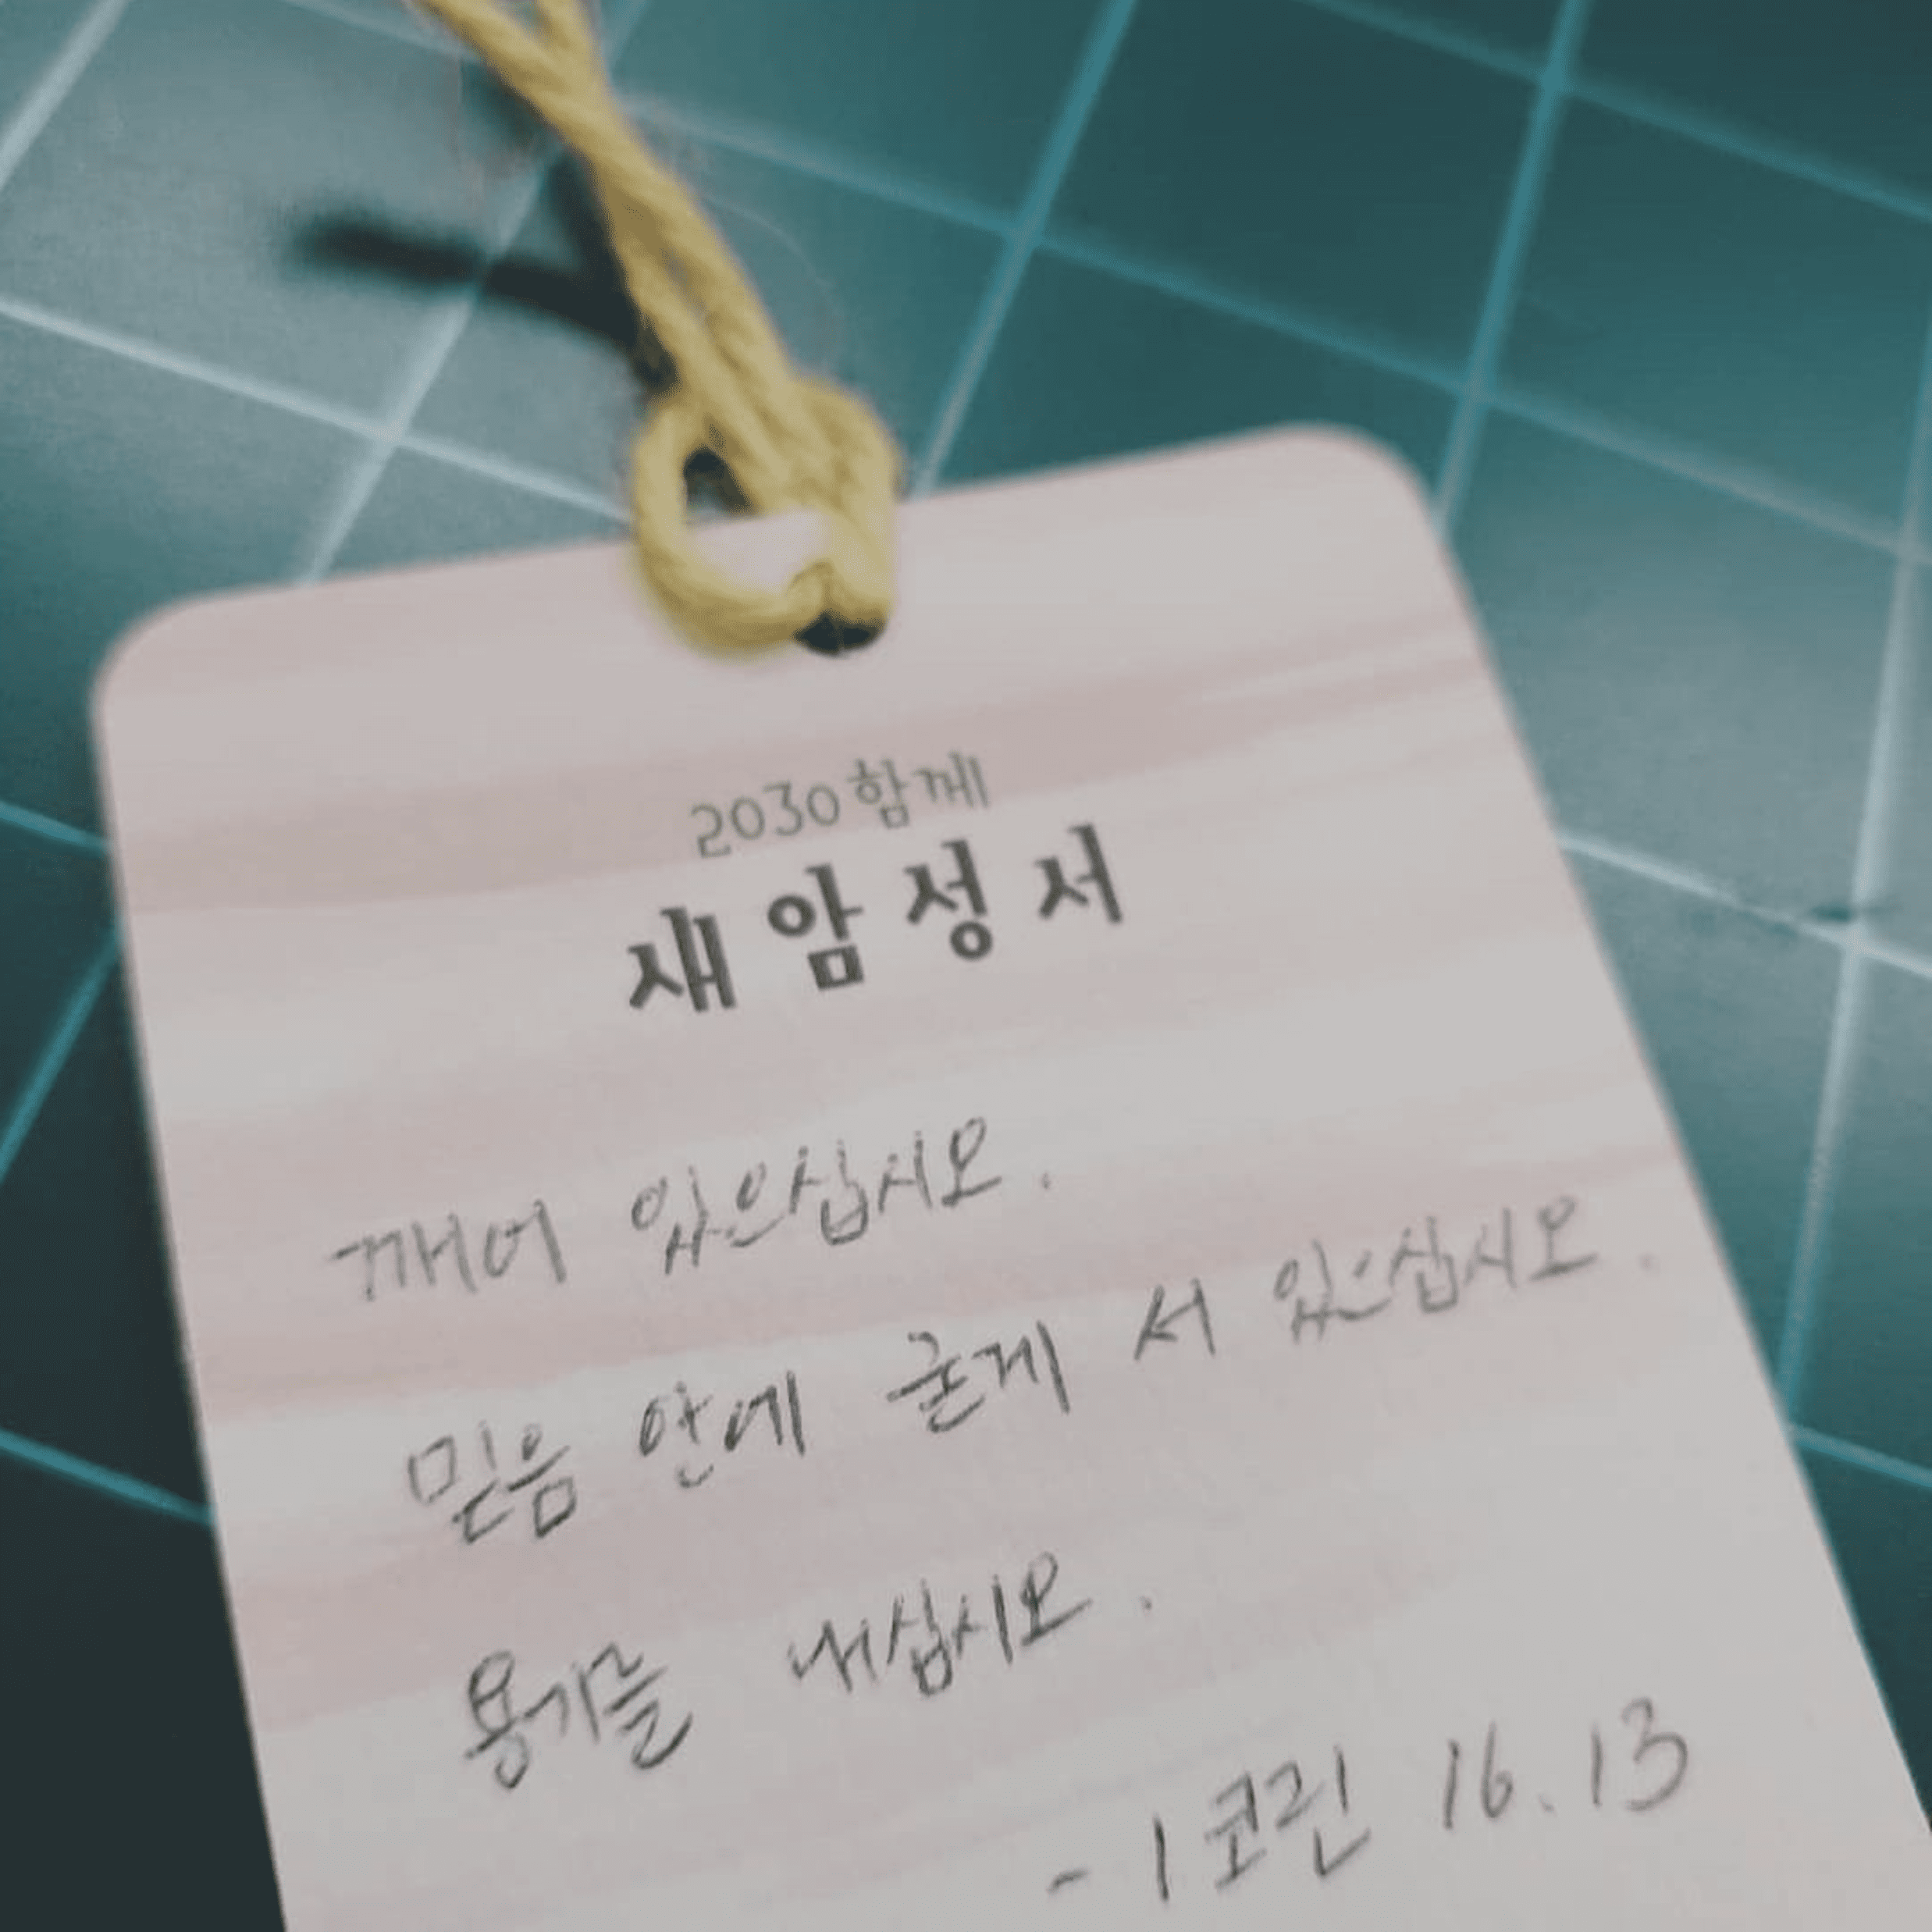 2030함께
새암성서
깨어 있으십시오.
믿음 안에 굳게 서 있으십시오.
용기를 내십시오.
- 1코린 16.13